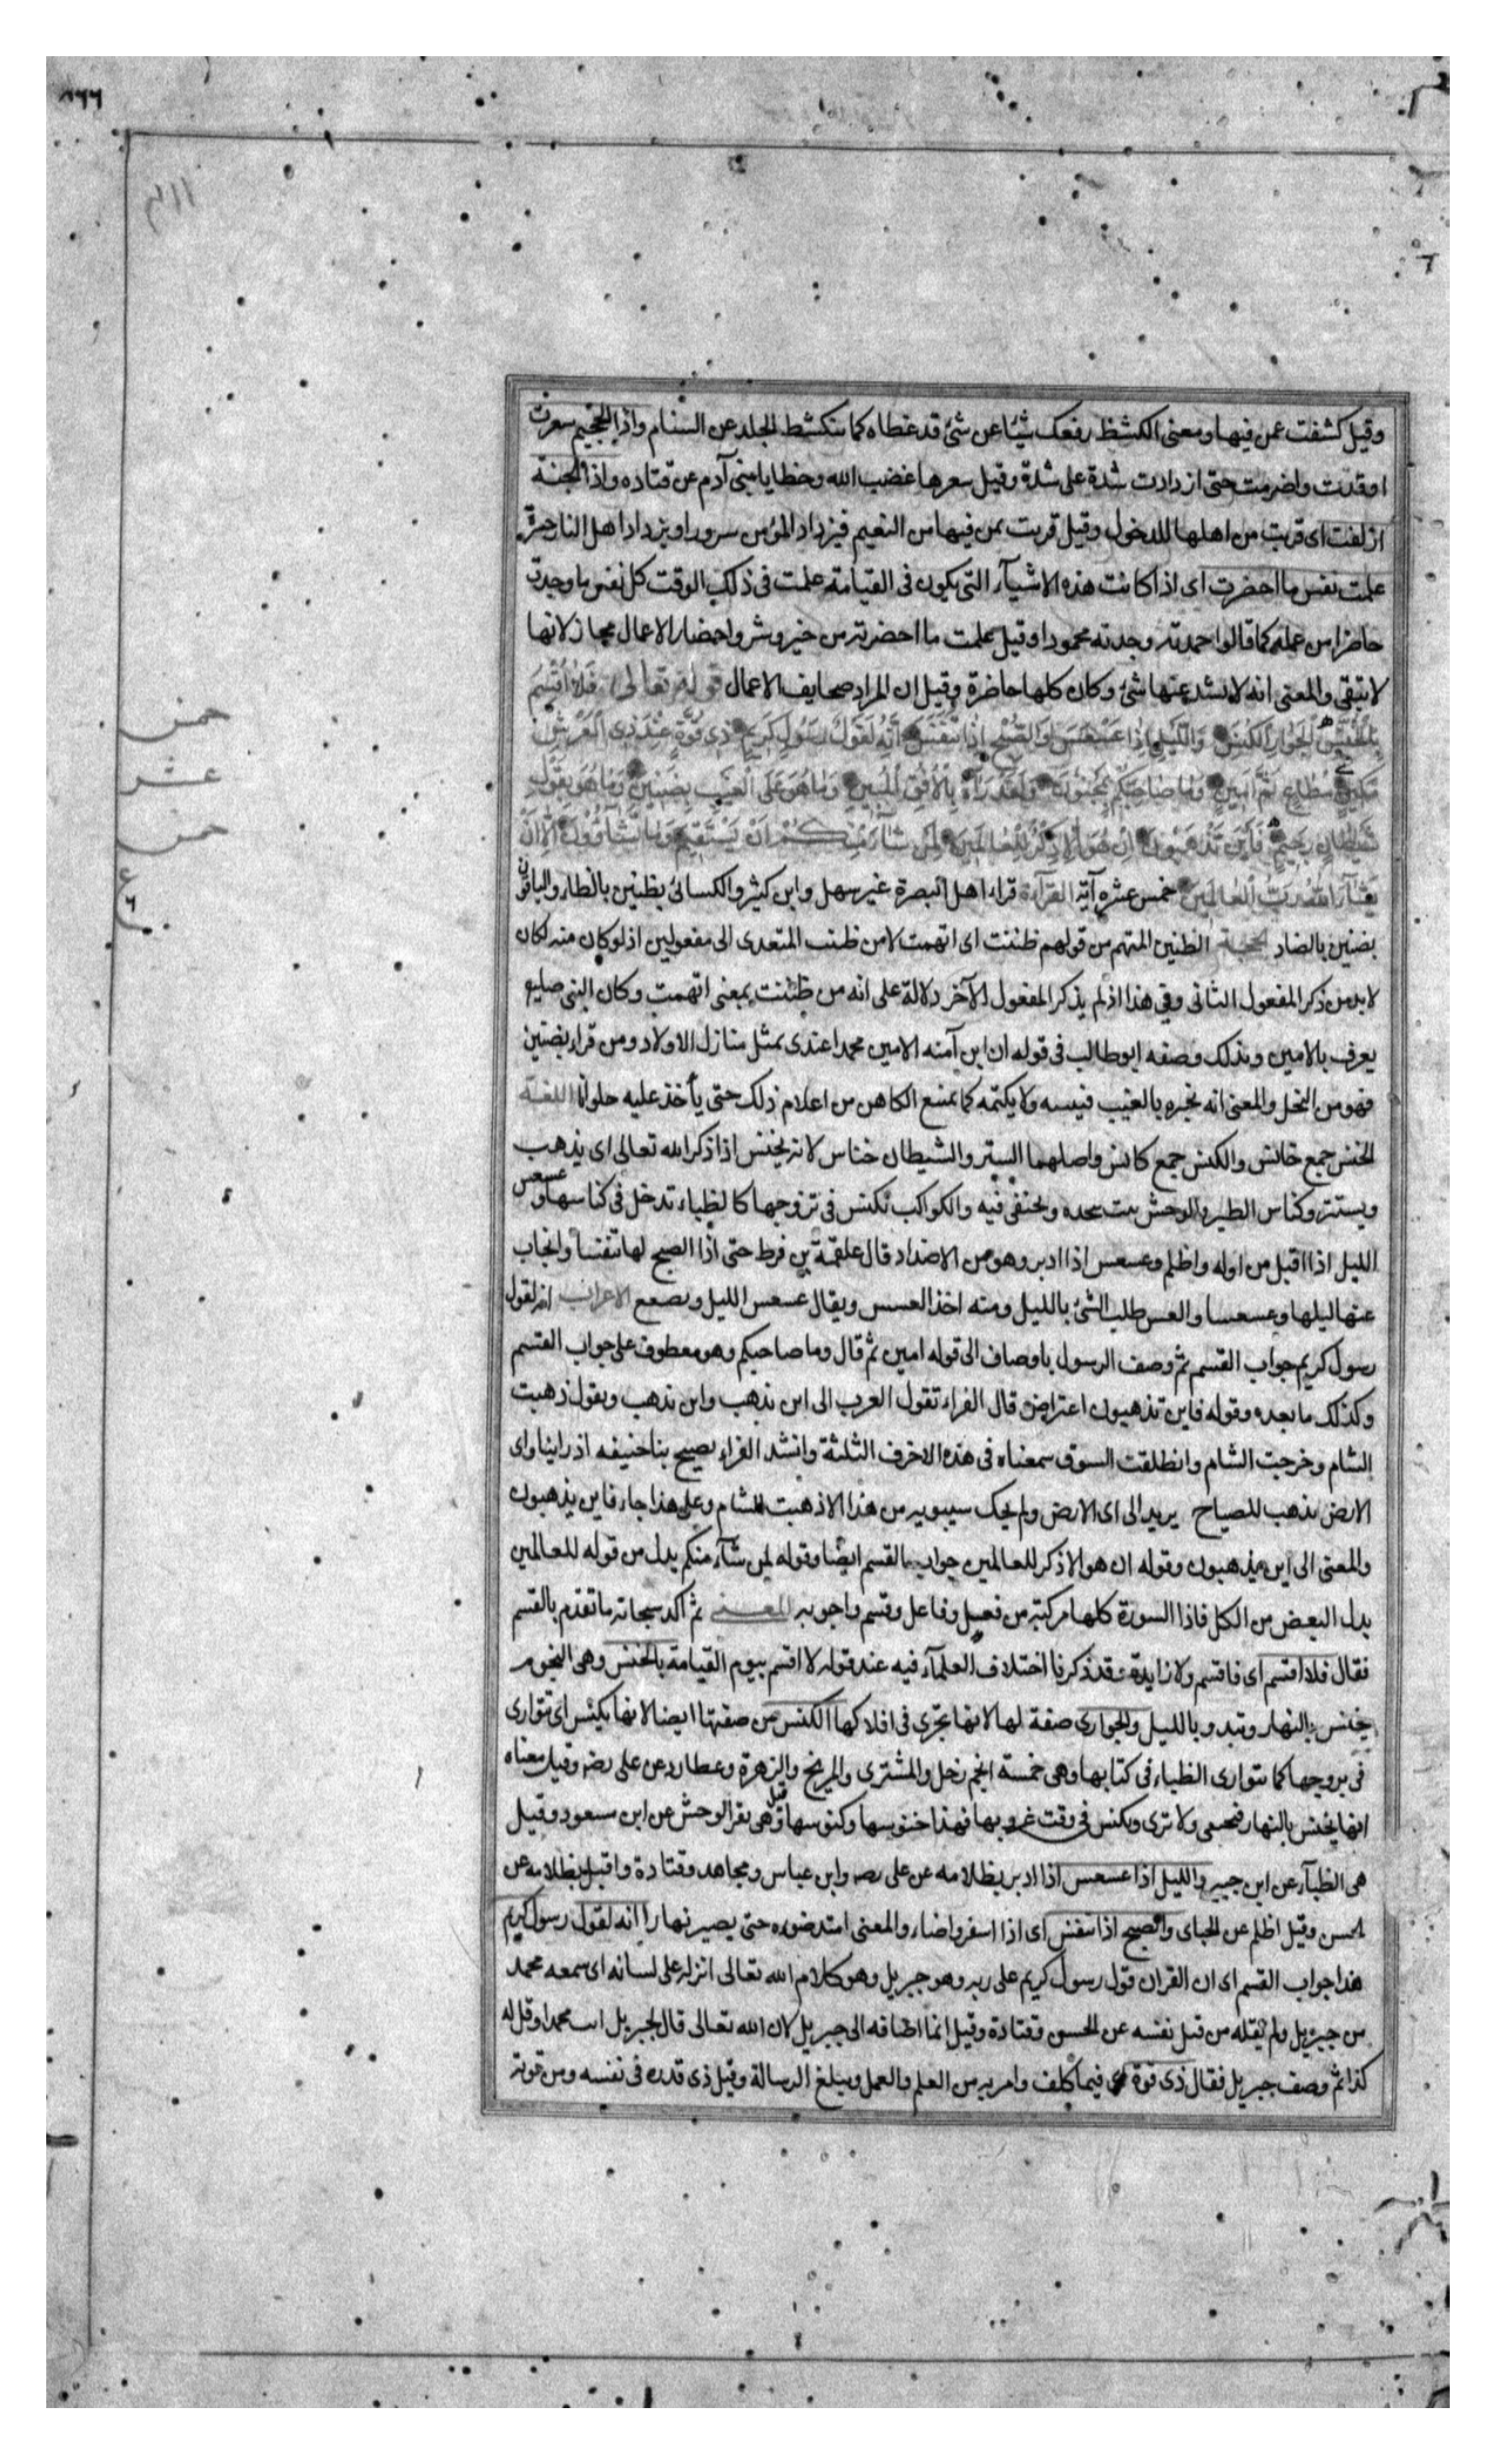 وقيل كشفت عمن فيها ومعنى الكشط رفعك شيئا عن شئ قد غطاه كما يتكشط الجلد عن السنام واذا الجحيم سعرت
اوقدت واضرمت حتى ازدادت شدة على شدة وقيل سعرها غضب الله وخطايا بنى آدم عن قتاده واذا الجنة
ازلفت اى قربت من اهلها للدخول وقيل قربت بمن فيها من النعيم فيزداد المؤمن سرورا ويزداد اهل النار حسرة
علمت نفس ما احضرت اى اذا كانت هذه الاشيآء التى يكون فى القيامة علمت فى ذلك الوقت كل نفس ما وجدت
حاضرا من عمله كما قالوا احمدته وجدته محمودا وقيل علمت ما احضرته من خير وشر واحضار الاعمال مجاز لانها
لا تبقى والمعنى انه لا يشذ عنها شئ وكان كلها حاضرة وقيل ان المراد صحايف الاعمال قوله تعالى فَلَا أُقْسِمُ
بِالْخُنَّسِ الْجَوَارِ الْكُنَّسِ وَاللَّيْلِ إِذَا عَسْعَسَ وَالصُّبْحِ إِذَا تَنَفَّسَ إِنَّهُ لَقَوْلُ رَسُولٍ كَرِيمٍ ذِى قُوَّةٍ عِنْدَ ذِى الْعَرْشِ
مَكِينٍ مُطَاعٍ ثَمَّ أَمِينٍ وَمَا صَاحِبُكُمْ بِمَجْنُونٍ وَلَقَدْ رَآهُ بِالْأُفُقِ الْمُبِينِ وَمَا هُوَ عَلَى الْغَيْبِ بِضَنِينٍ وَمَا هُوَ بِقَوْلِ
شَيْطَانٍ رَجِيمٍ فَأَيْنَ تَذْهَبُونَ إِنْ هُوَ إِلَّا ذِكْرٌ لِلْعَالَمِينَ لِمَنْ شَاءَ مِنْكُمْ أَنْ يَسْتَقِيمَ وَمَا تَشَاؤُونَ إِلَّا أَنْ
يَشَاءَ اللَّهُ رَبُّ الْعَالَمِينَ خمس عشره آية القرآءة قراء اهل البصرة غير سهل وابن كثير والكسائى بظنين بالظاء والباقون
بضنين بالضاد الحجة الظنين المتهم من قولهم ظننت اى اتهمت لا من ظننت المتعدى الى مفعولين اذ لو كان منه لكان
لا بد من ذكر المفعول الثانى وفى هذا اذ لم يذكر المفعول الآخر دلالة على انه من ظننت بمعنى اتهمت وكان النبى صليه
يعرف بالامين وبذلك وصفه ابو طالب فى قوله ان ابن آمنه الامين محمدا عندى بمثل منازل الاولاد ومن قراء بضنين
فهو من البخل والمعنى انه يخبره بالغيب فيبينه ولا يكتمه كما يمتنع الكاهن من اعلام ذلك حتى يأخذ عليه حلوانا اللغة
الخنس جمع خانس والكنس جمع كانس واصلهما الستر والشيطان خناس لانه يخنس اذا ذكر الله تعالى اى يذهب
ويستتر وكناس الطير والوحش بيت يتخذه ويختفى فيه والكواكب تكنس فى بروجها كالظباء تدخل فى كناسها وعسعس
الليل اذا اقبل من اوله واظلم وعسعس اذا ادبر وهو من الاضداد قال علقمة بن قرط حتى اذا الصبح لها تنفسا وانجاب
عنها ليلها وعسعسا والعس طلب الشئ بالليل ومنه اخذ العسس ويقال عسعس الليل وسعسع الاعراب انه لقول
رسول كريم جواب القسم ثم وصف الرسول باوصاف الى قوله امين ثم قال وما صاحبكم وهو معطوف على جواب القسم
وكذلك ما بعده وقوله فاين تذهبون اعتراض قال الفراء تقول العرب الى اين تذهب واين تذهب ويقول ذهبت
الشام وخرجت الشام وانطلقت السوق سمعناه فى هذه الاحرف الثلثة وانشد الفراء يصيح بنا حنيفه اذ راينا واى
الارض تذهب للصياح يريد الى اى الارض ولم يحك سيبويه من هذا الا ذهبت الشام وعلى هذا جاء فاين يذهبون
والمعنى الى اين يذهبون وقوله ان هو الا ذكر للعالمين جواب القسم ايضا وقوله لمن شآء منكم بدل من قوله للعالمين
بدل البعض من الكل فاذا السورة كلها مركبة من فعل وفاعل وقسم واجوبه المعنى ثم اكد سبحانه ما تقدم بالقسم
فقال فلا اقسم اى فاقسم ولا زايدة وقد ذكرنا اختلاف العلمآء فيه عند قوله لا اقسم بيوم القيامة بالخنس وهى النجوم
يخنس بالنهار وتبدو بالليل والجوارى صفة لها لانها تجرى فى افلاكها الكنس من صفتها ايضا لانها يكنس اى تتوارى
فى بروجها كما يتوارى الظباء فى كتابها وهى خمسة انجم زحل والمشترى والمريخ والزهرة وعطارد عن على رضه وقيل معناه
انها يخنس بالنهار فتخفى ولا ترى وتكنس فى وقت غروبها فهذا خنوسها وكنوسها وقيل هى بقر الوحش عن ابن مسعود وقيل
هى الظبآء عن ابن جبير والليل اذا عسعس اذا ادبر بظلامه عن على رضه وابن عباس ومجاهد وقتادة واقبل بظلامه عن
الحسن وقيل اظلم عن الجباى والصبح اذا تنفس اى اذا اسفر واضاء والمعنى امتد ضوءه حتى يصير نهارا انه لقول رسول كريم
هذا جواب القسم اى ان القران قول رسول كريم على ربه وهو جبريل وهو كلام الله تعالى انزله على لسانه اى سمعه محمد
من جبريل ولم يقله من قبل نفسه عن الحسن وقتادة وقيل انما اضافه الى جبريل لان الله تعالى قال لجبريل ائت محمدا وقل له
كذا ثم وصف جبريل فقال ذى قوة اى فيما كلف وامر به من العلم والعمل وتبليغ الرسالة وقيل ذى قدره فى نفسه ومن قوته
خمس
عشر
خمس
ع
٦